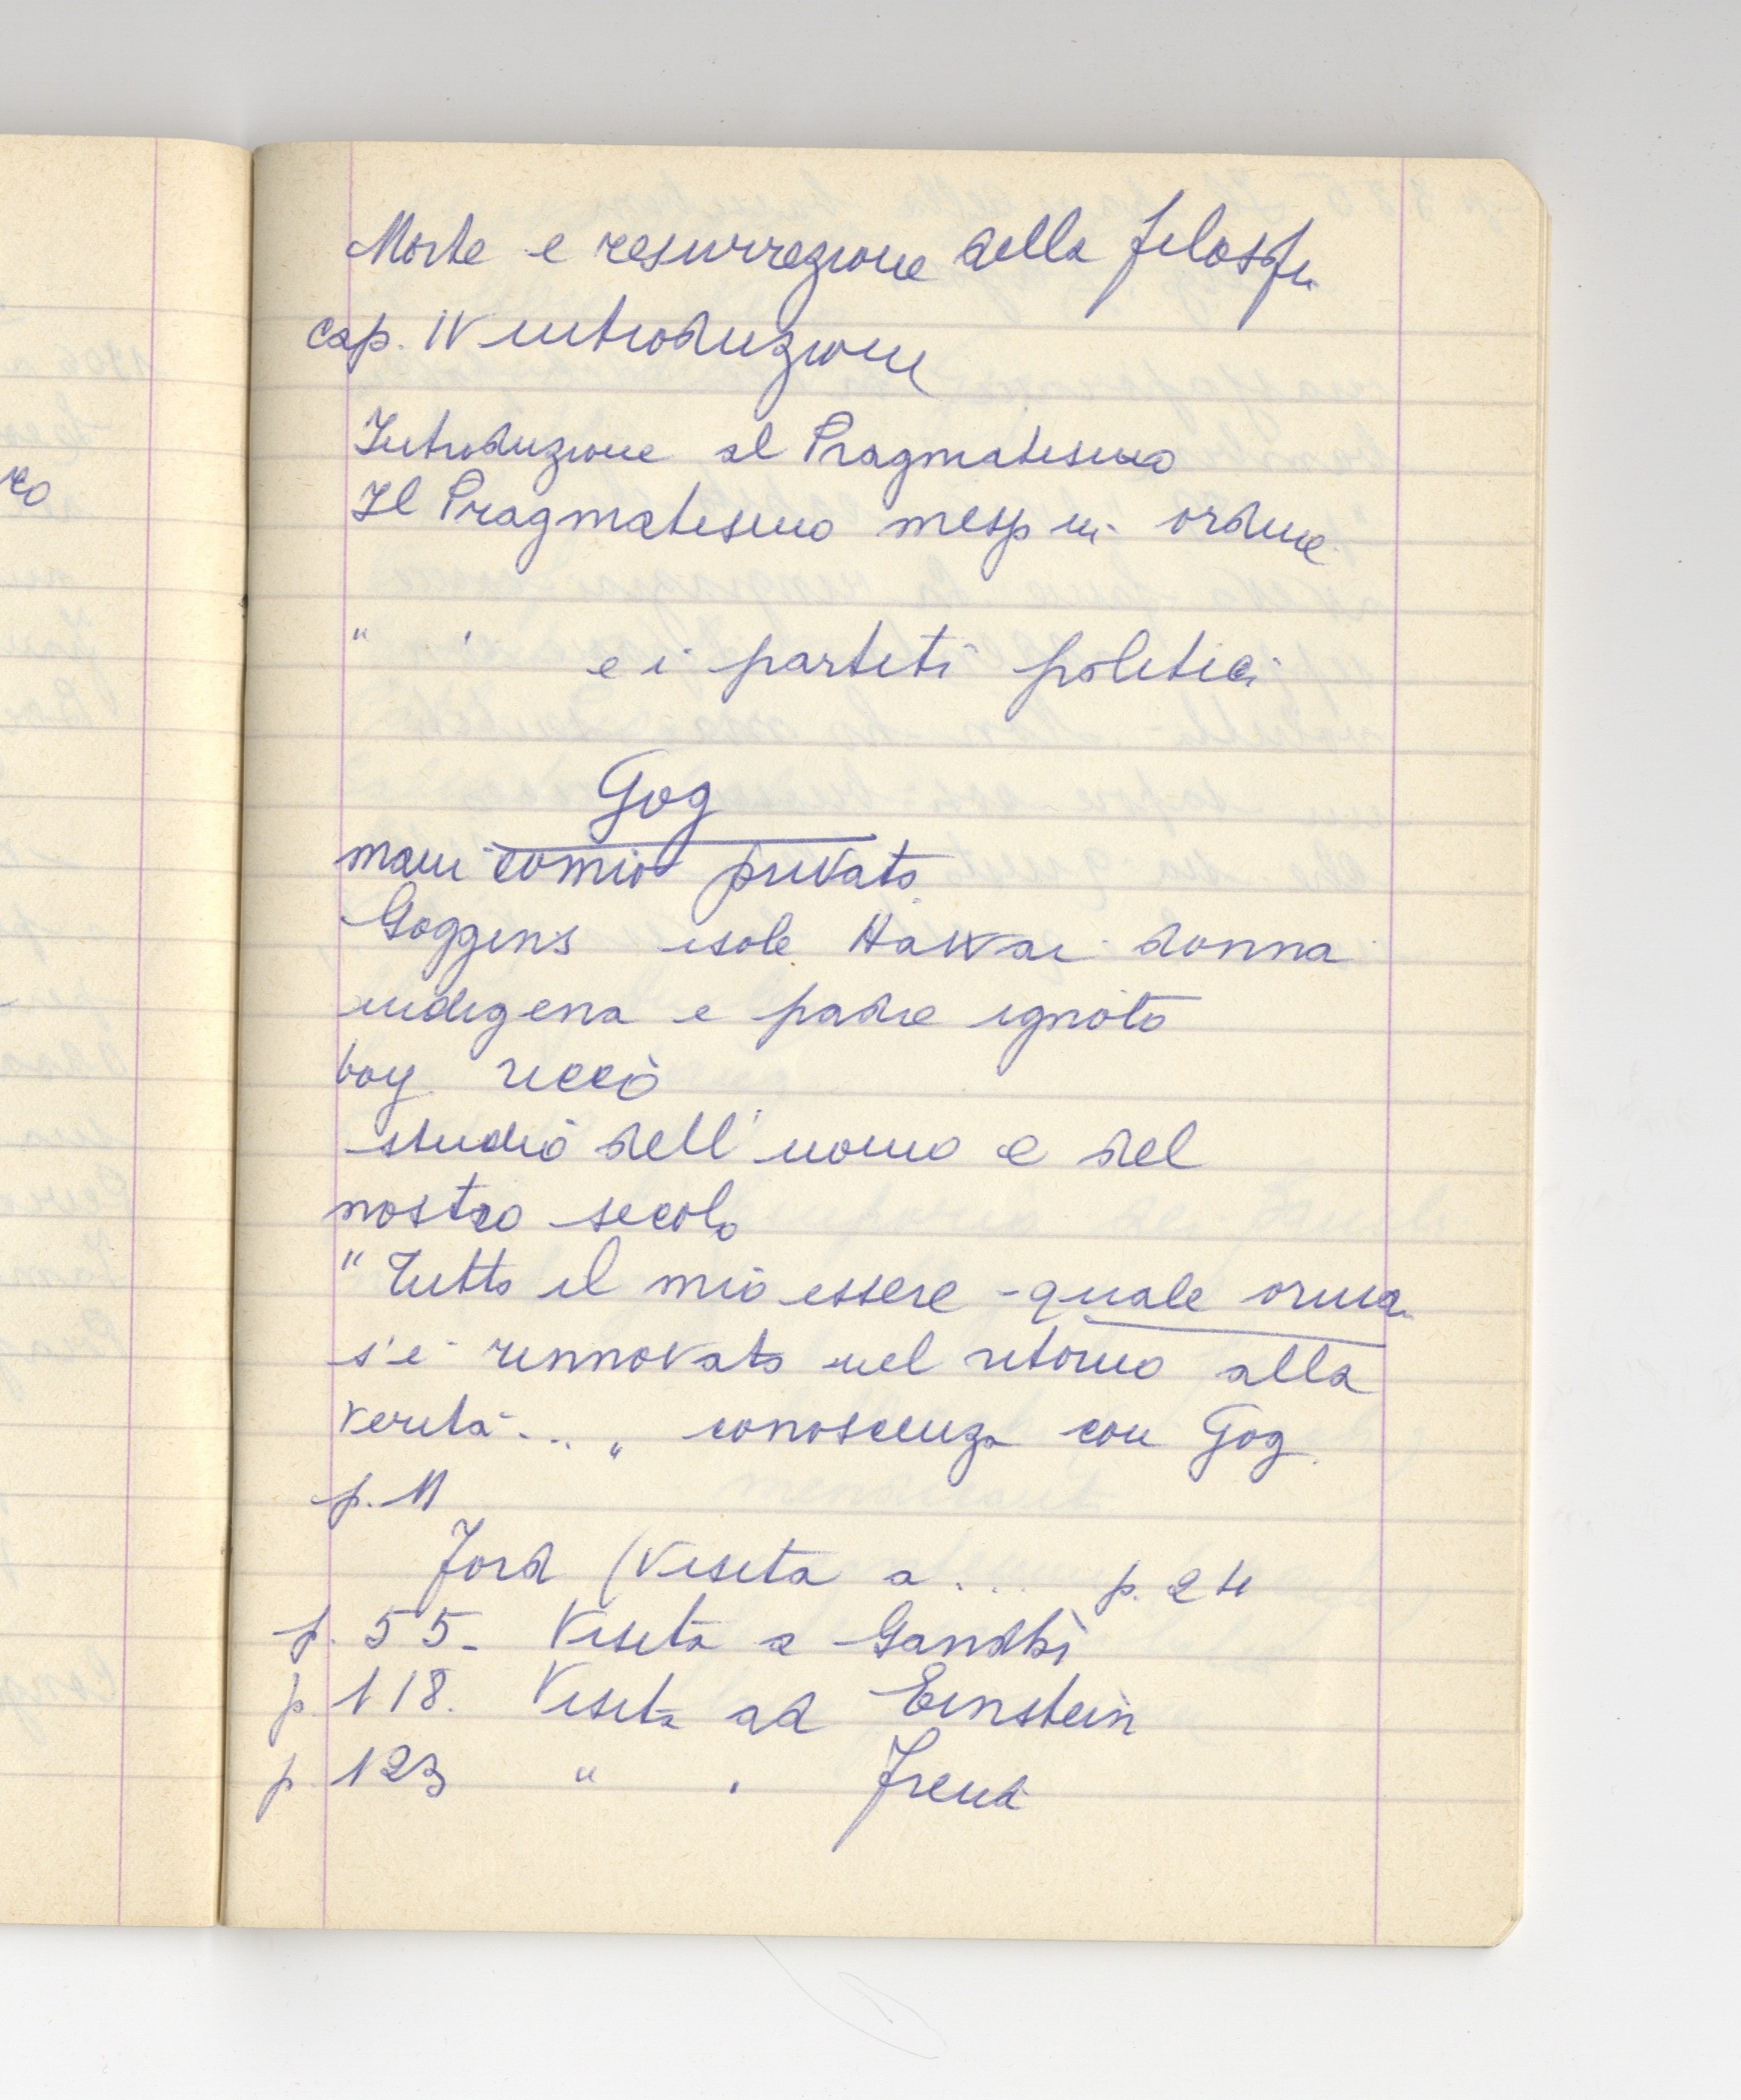 Morte e resurrezione della filosofia
cap. IV introduzione
Introduzione al Pragmatismo
Il Pragmatismo messo in ordine
" " e i partiti politici
Gog
manicomio privato
Goggins isole Hawai donna
indigena e padre ignoto
boy riccò
studiò dell'uomo e del
nostro secolo
"Tutto il mio essere - quale orma
s'è rinnovato nel ritorno alla
verità..." conoscenza con Gog
p. 11
Ford (Visita a... p. 24
p. 55 - Visita a Gandhi
p. 118. Visita ad Einstein
p. 123 " " Freud